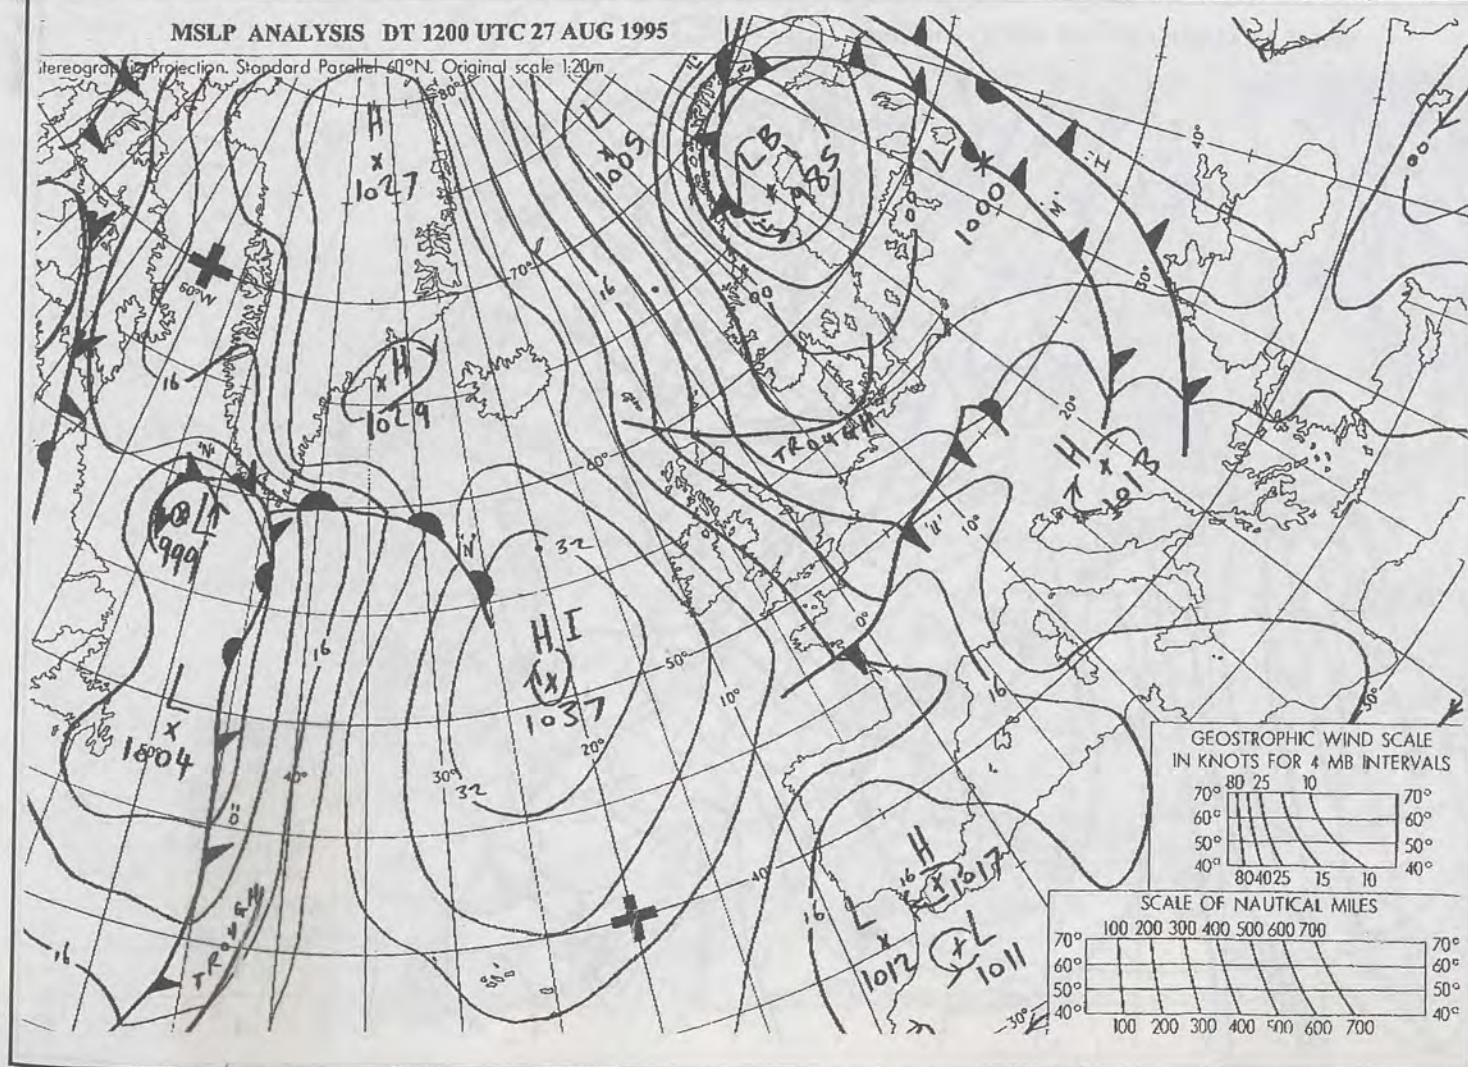 MSLP ANALYSIS DT 1200 UTC 27 AUG 1995
tereographic Projection. Standard Parallel 60°N. Original scale 1:20m
H
1027
80°
L
1005
LB
985
L
1000
'M'
'H'
40°
00
60°W
70°
16
00
30°
H
1029
16
'N'
L
999
60°
TROUGH
20°
H
1013
'N'
32
10°
'L'
0°
16
H I
1037
50°
10°
16
L
1004
40°
30°
32
20°
'O'
TROUGH
16
40°
H
16
1017
16
L
1012
L
1011
30°
50°
GEOSTROPHIC WIND SCALE
IN KNOTS FOR 4 MB INTERVALS
80 25 10
70° 70°
60° 60°
50° 50°
40° 40°
80 40 25 15 10
SCALE OF NAUTICAL MILES
100 200 300 400 500 600 700
70° 70°
60° 60°
50° 50°
40° 40°
100 200 300 400 500 600 700